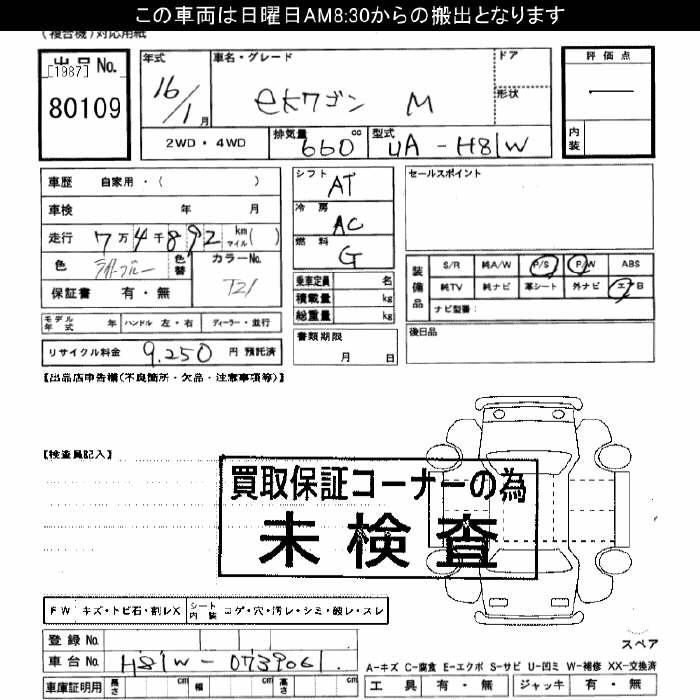 この車両は日曜日AM8:30からの搬出となります
(複合機)対応用紙
出品 No.
[1987]
80109
年式
16/1月
車名・グレード
ekワゴン M
ドア
形状
評価点
内装
2WD・4WD
排気量
660 cc
型式
UA-H81W
車歴 自家用・( )
車検 年 月
走行 7万4千892 km マイル( )
色 ライトブルー 色替
カラーNo.
T21
保証書 有・無
シフト
AT
冷房
AC
燃料
G
乗車定員 名
積載量 kg
総重量 kg
セールスポイント
装備品
S/R 純A/W P/S P/W ABS
純TV 純ナビ 革シート 外ナビ エアB
ナビ型番:
モデル年式 年 ハンドル 左・右 ディーラー・並行
書類期限
月 日
後日品
リサイクル料金 9,250 円 預託済
【出品店申告欄(不良箇所・欠品・注意事項等)】
【検査員記入】
買取保証コーナーの為
未検査
FW キズ・トビ石・割レX シート内装 コゲ・穴・汚レ・シミ・破レ・スレ
登録 No.
車台 No. H81W-0739061
スペア
A-キズ C-腐食 E-エクボ S-サビ U-凹ミ W-補修 XX-交換済
車庫証明用 長さ cm 幅 cm 高さ cm
工具 有・無 ジャッキ 有・無